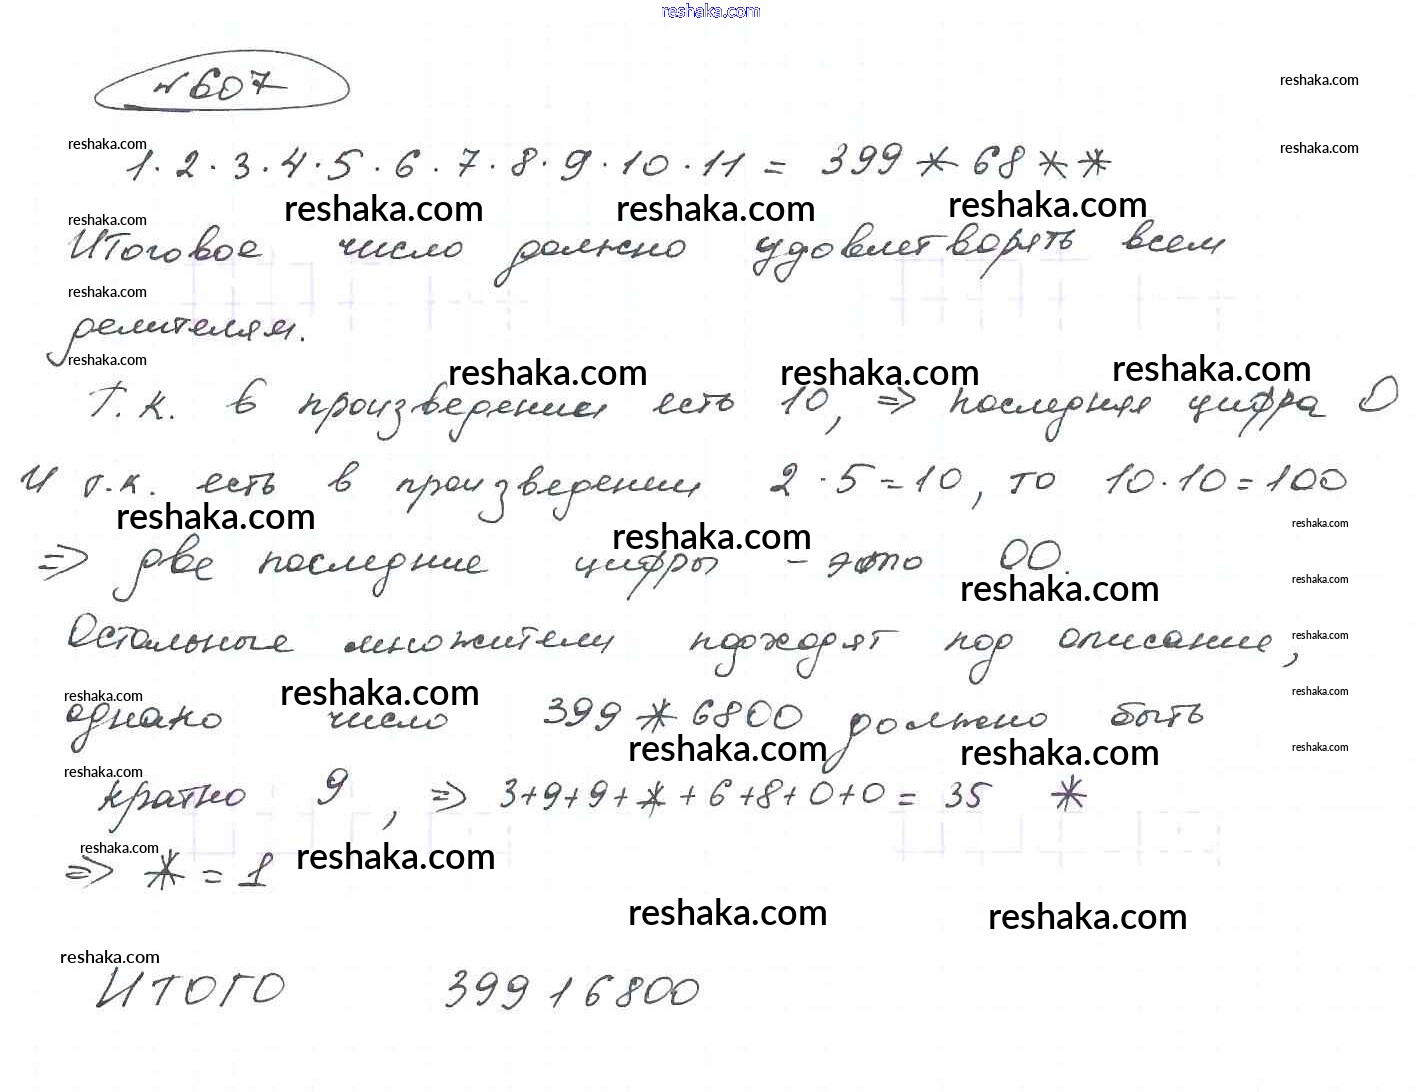 reshaka.com
№607
reshaka.com
reshaka.com
1·2·3·4·5·6·7·8·9·10·11 = 399*68**
reshaka.com
reshaka.com reshaka.com reshaka.com
reshaka.com
Итоговое число должно удовлетворять всем
reshaka.com
делителям.
reshaka.com
reshaka.com reshaka.com reshaka.com
Т.к. в произведении есть 10, => последняя цифра 0
И т.к. есть в произведении 2·5=10, то 10·10=100
reshaka.com reshaka.com reshaka.com
=> две последние цифры - это 00.
reshaka.com reshaka.com
Остальные множители подходят под описание,
reshaka.com
reshaka.com reshaka.com reshaka.com
однако число 399*6800 должно быть
reshaka.com reshaka.com reshaka.com
reshaka.com
кратно 9, => 3+9+9+*+6+8+0+0 = 35 *
reshaka.com reshaka.com
=> * = 1
reshaka.com reshaka.com
reshaka.com
ИТОГО 39916800